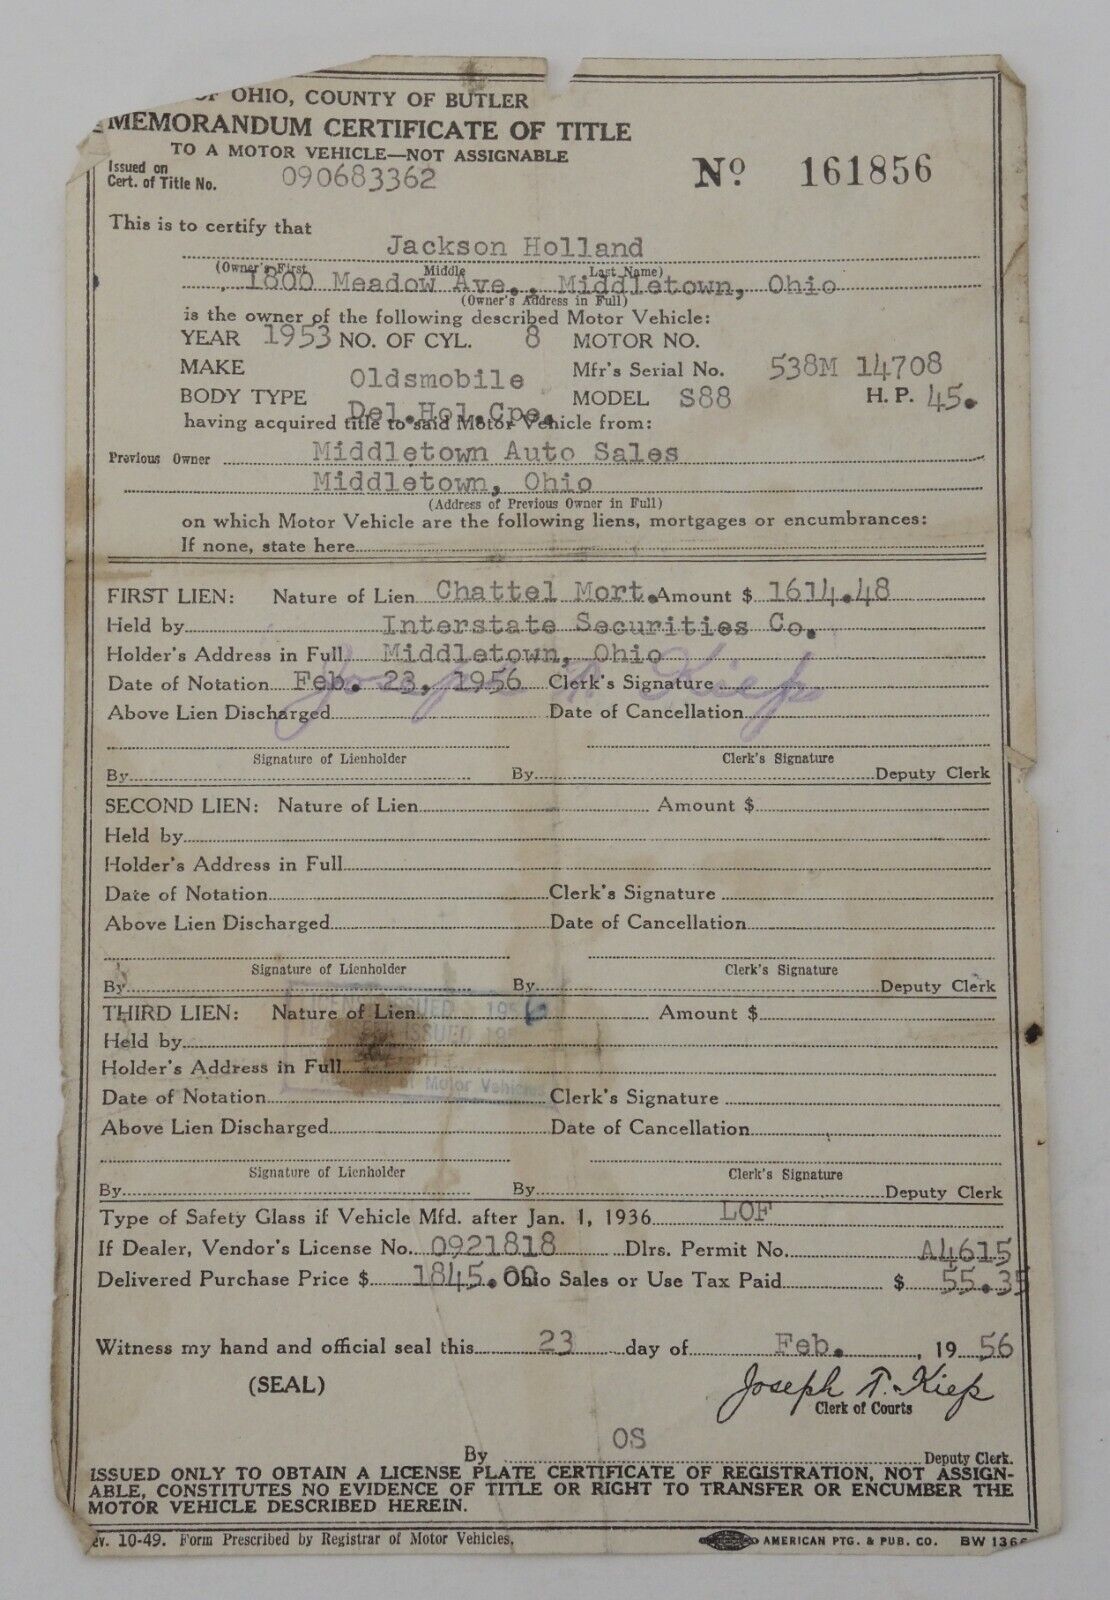 OF OHIO, COUNTY OF BUTLER
MEMORANDUM CERTIFICATE OF TITLE
TO A MOTOR VEHICLE—NOT ASSIGNABLE
Issued on
Cert. of Title No. 090683362 No 161856
This is to certify that
Jackson Holland
(Owner's First Middle Last Name)
1800 Meadow Ave., Middletown, Ohio
(Owner's Address in Full)
is the owner of the following described Motor Vehicle:
YEAR 1953 NO. OF CYL. 8 MOTOR NO.
MAKE Oldsmobile Mfr's Serial No. 538M 14708
BODY TYPE Del.Hol.Cpe. MODEL S88 H. P. 45.
having acquired title to said Motor Vehicle from:
Previous Owner Middletown Auto Sales
Middletown, Ohio
(Address of Previous Owner in Full)
on which Motor Vehicle are the following liens, mortgages or encumbrances:
If none, state here
FIRST LIEN: Nature of Lien Chattel Mort. Amount $ 1614.48
Held by Interstate Securities Co.
Holder's Address in Full Middletown, Ohio
Date of Notation Feb. 23, 1956 Clerk's Signature Joseph T. Kiep
Above Lien Discharged Date of Cancellation
Signature of Lienholder Clerk's Signature
By By Deputy Clerk
SECOND LIEN: Nature of Lien Amount $
Held by
Holder's Address in Full
Date of Notation Clerk's Signature
Above Lien Discharged Date of Cancellation
Signature of Lienholder Clerk's Signature
By By Deputy Clerk
LICENSE ISSUED 1956
THIRD LIEN: Nature of Lien Amount $
ISSUED 195
Held by
Holder's Address in Full
Motor Vehicles
Date of Notation Clerk's Signature
Above Lien Discharged Date of Cancellation
Signature of Lienholder Clerk's Signature
By By Deputy Clerk
Type of Safety Glass if Vehicle Mfd. after Jan. 1, 1936 LOF
If Dealer, Vendor's License No. 0921818 Dlrs. Permit No. A4615
Delivered Purchase Price $ 1845.00 Ohio Sales or Use Tax Paid $ 55.35
Witness my hand and official seal this 23 day of Feb. , 19 56
(SEAL) Joseph T. Kiep
Clerk of Courts
OS
By Deputy Clerk.
ISSUED ONLY TO OBTAIN A LICENSE PLATE CERTIFICATE OF REGISTRATION, NOT ASSIGN-
ABLE, CONSTITUTES NO EVIDENCE OF TITLE OR RIGHT TO TRANSFER OR ENCUMBER THE
MOTOR VEHICLE DESCRIBED HEREIN.
ev. 10-49. Form Prescribed by Registrar of Motor Vehicles. AMERICAN PTG. & PUB. CO. BW 1366